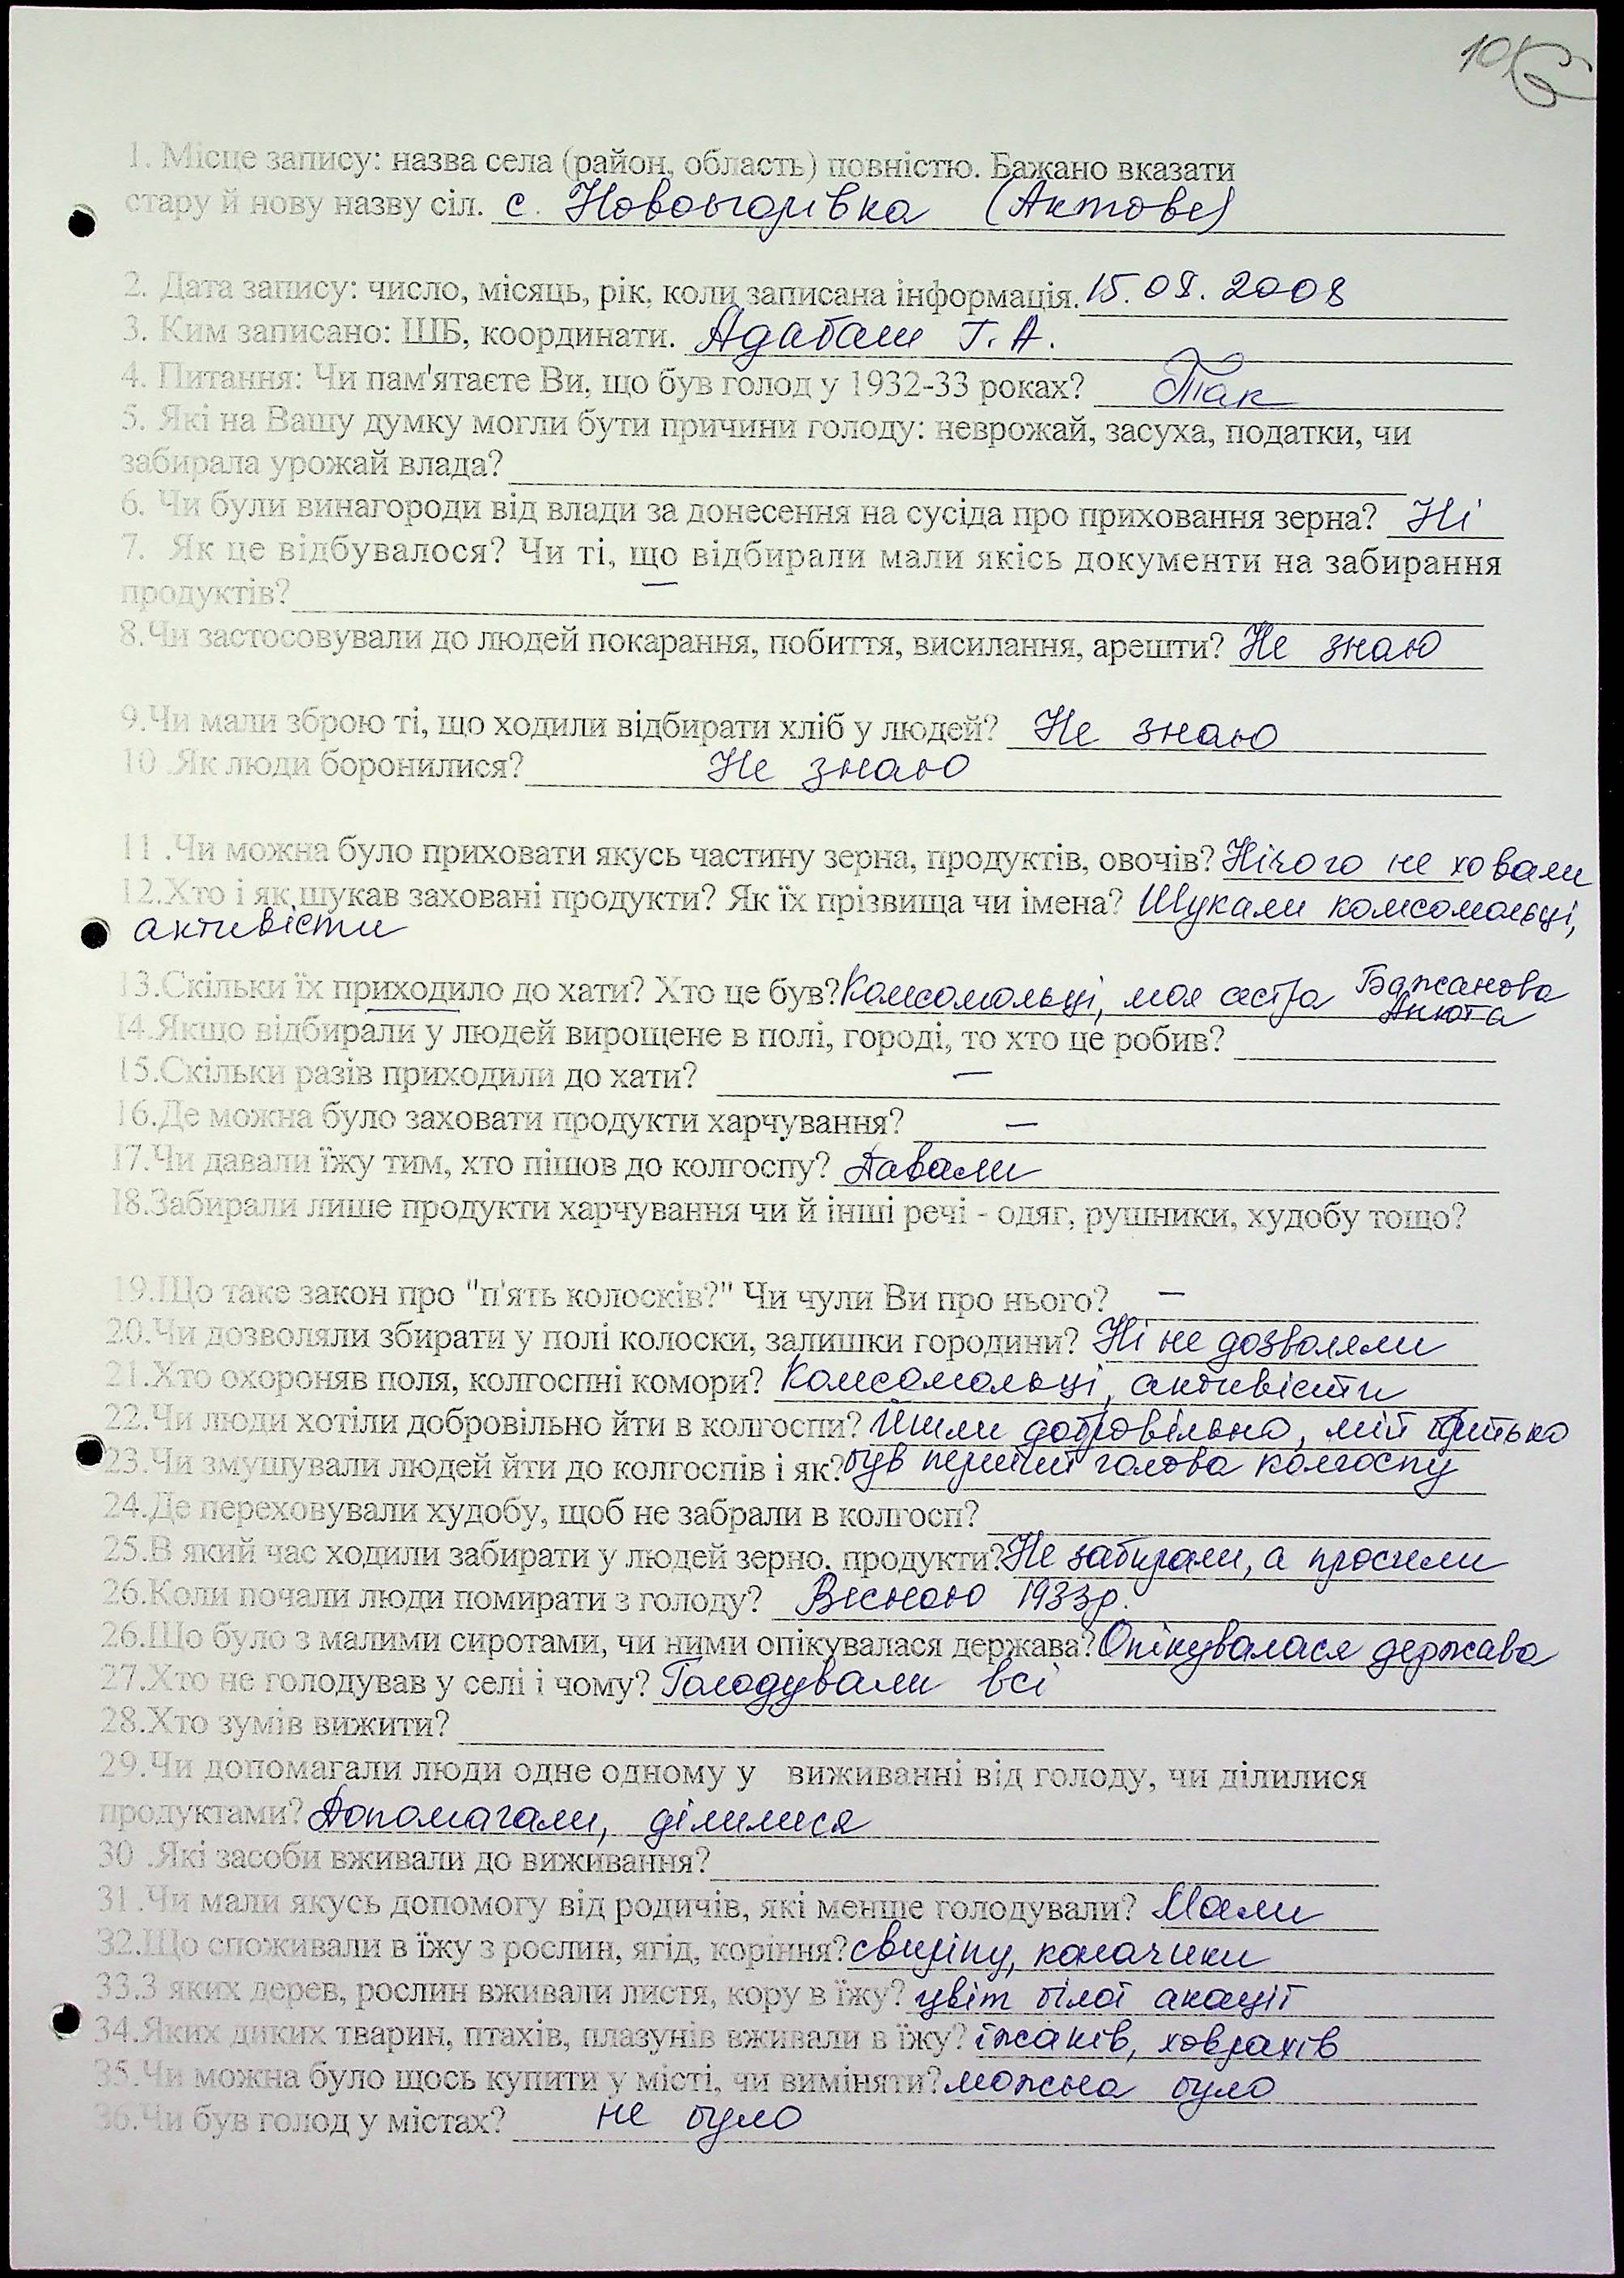 10
1. Місце запису: назва села (район, область) повністю. Бажано вказати
стару й нову назву сіл. с. Новоігорівка (Актове)
2. Дата запису: число, місяць, рік, коли записана інформація. 15.08.2008
3. Ким записано: ПІБ, координати. Адабаш Г.А.
4. Питання: Чи пам'ятаєте Ви, що був голод у 1932-33 роках? Так
5. Які на Вашу думку могли бути причини голоду: неврожай, засуха, податки, чи
забирала урожай влада?
6. Чи були винагороди від влади за донесення на сусіда про приховання зерна? Ні
7. Як це відбувалося? Чи ті, що відбирали мали якісь документи на забирання
продуктів? —
8.Чи застосовували до людей покарання, побиття, висилання, арешти? Не знаю
9.Чи мали зброю ті, що ходили відбирати хліб у людей? Не знаю
10 .Як люди боронилися? Не знаю
11 .Чи можна було приховати якусь частину зерна, продуктів, овочів? Нічого не ховали
12.Хто і як шукав заховані продукти? Як їх прізвища чи імена? Шукали комсомольці,
активісти
13.Скільки їх приходило до хати? Хто це був? Комсомольці, моя сестра Бажанова
Анюта
14.Якщо відбирали у людей вирощене в полі, городі, то хто це робив?
15.Скільки разів приходили до хати? —
16.Де можна було заховати продукти харчування? —
17.Чи давали їжу тим, хто пішов до колгоспу? Давали
18.Забирали лише продукти харчування чи й інші речі - одяг, рушники, худобу тощо?
19.Що таке закон про "п'ять колосків?" Чи чули Ви про нього? —
20.Чи дозволяли збирати у полі колоски, залишки городини? Ні не дозволяли
21.Хто охороняв поля, колгоспні комори? Комсомольці, активісти
22.Чи люди хотіли добровільно йти в колгоспи? Йшли добровільно, мій батько
23.Чи змушували людей йти до колгоспів і як? був перший голова колгоспу
24.Де переховували худобу, щоб не забрали в колгосп?
25.В який час ходили забирати у людей зерно, продукти? Не забирали, а просили
26.Коли почали люди помирати з голоду? Весною 1933р.
26.Що було з малими сиротами, чи ними опікувалася держава? Опікувалася держава
27.Хто не голодував у селі і чому? Голодували всі
28.Хто зумів вижити?
29.Чи допомагали люди одне одному у виживанні від голоду, чи ділилися
продуктами? Допомагали, ділилися
30 .Які засоби вживали до виживання?
31 .Чи мали якусь допомогу від родичів, які менше голодували? Мали
32.Що споживали в їжу з рослин, ягід, коріння? свиріпу, калачики
33.З яких дерев, рослин вживали листя, кору в їжу? цвіт білої акації
34.Яких диких тварин, птахів, плазунів вживали в їжу? їжаків, ховрахів
35.Чи можна було щось купити у місті, чи виміняти? можна було
36.Чи був голод у містах? не було